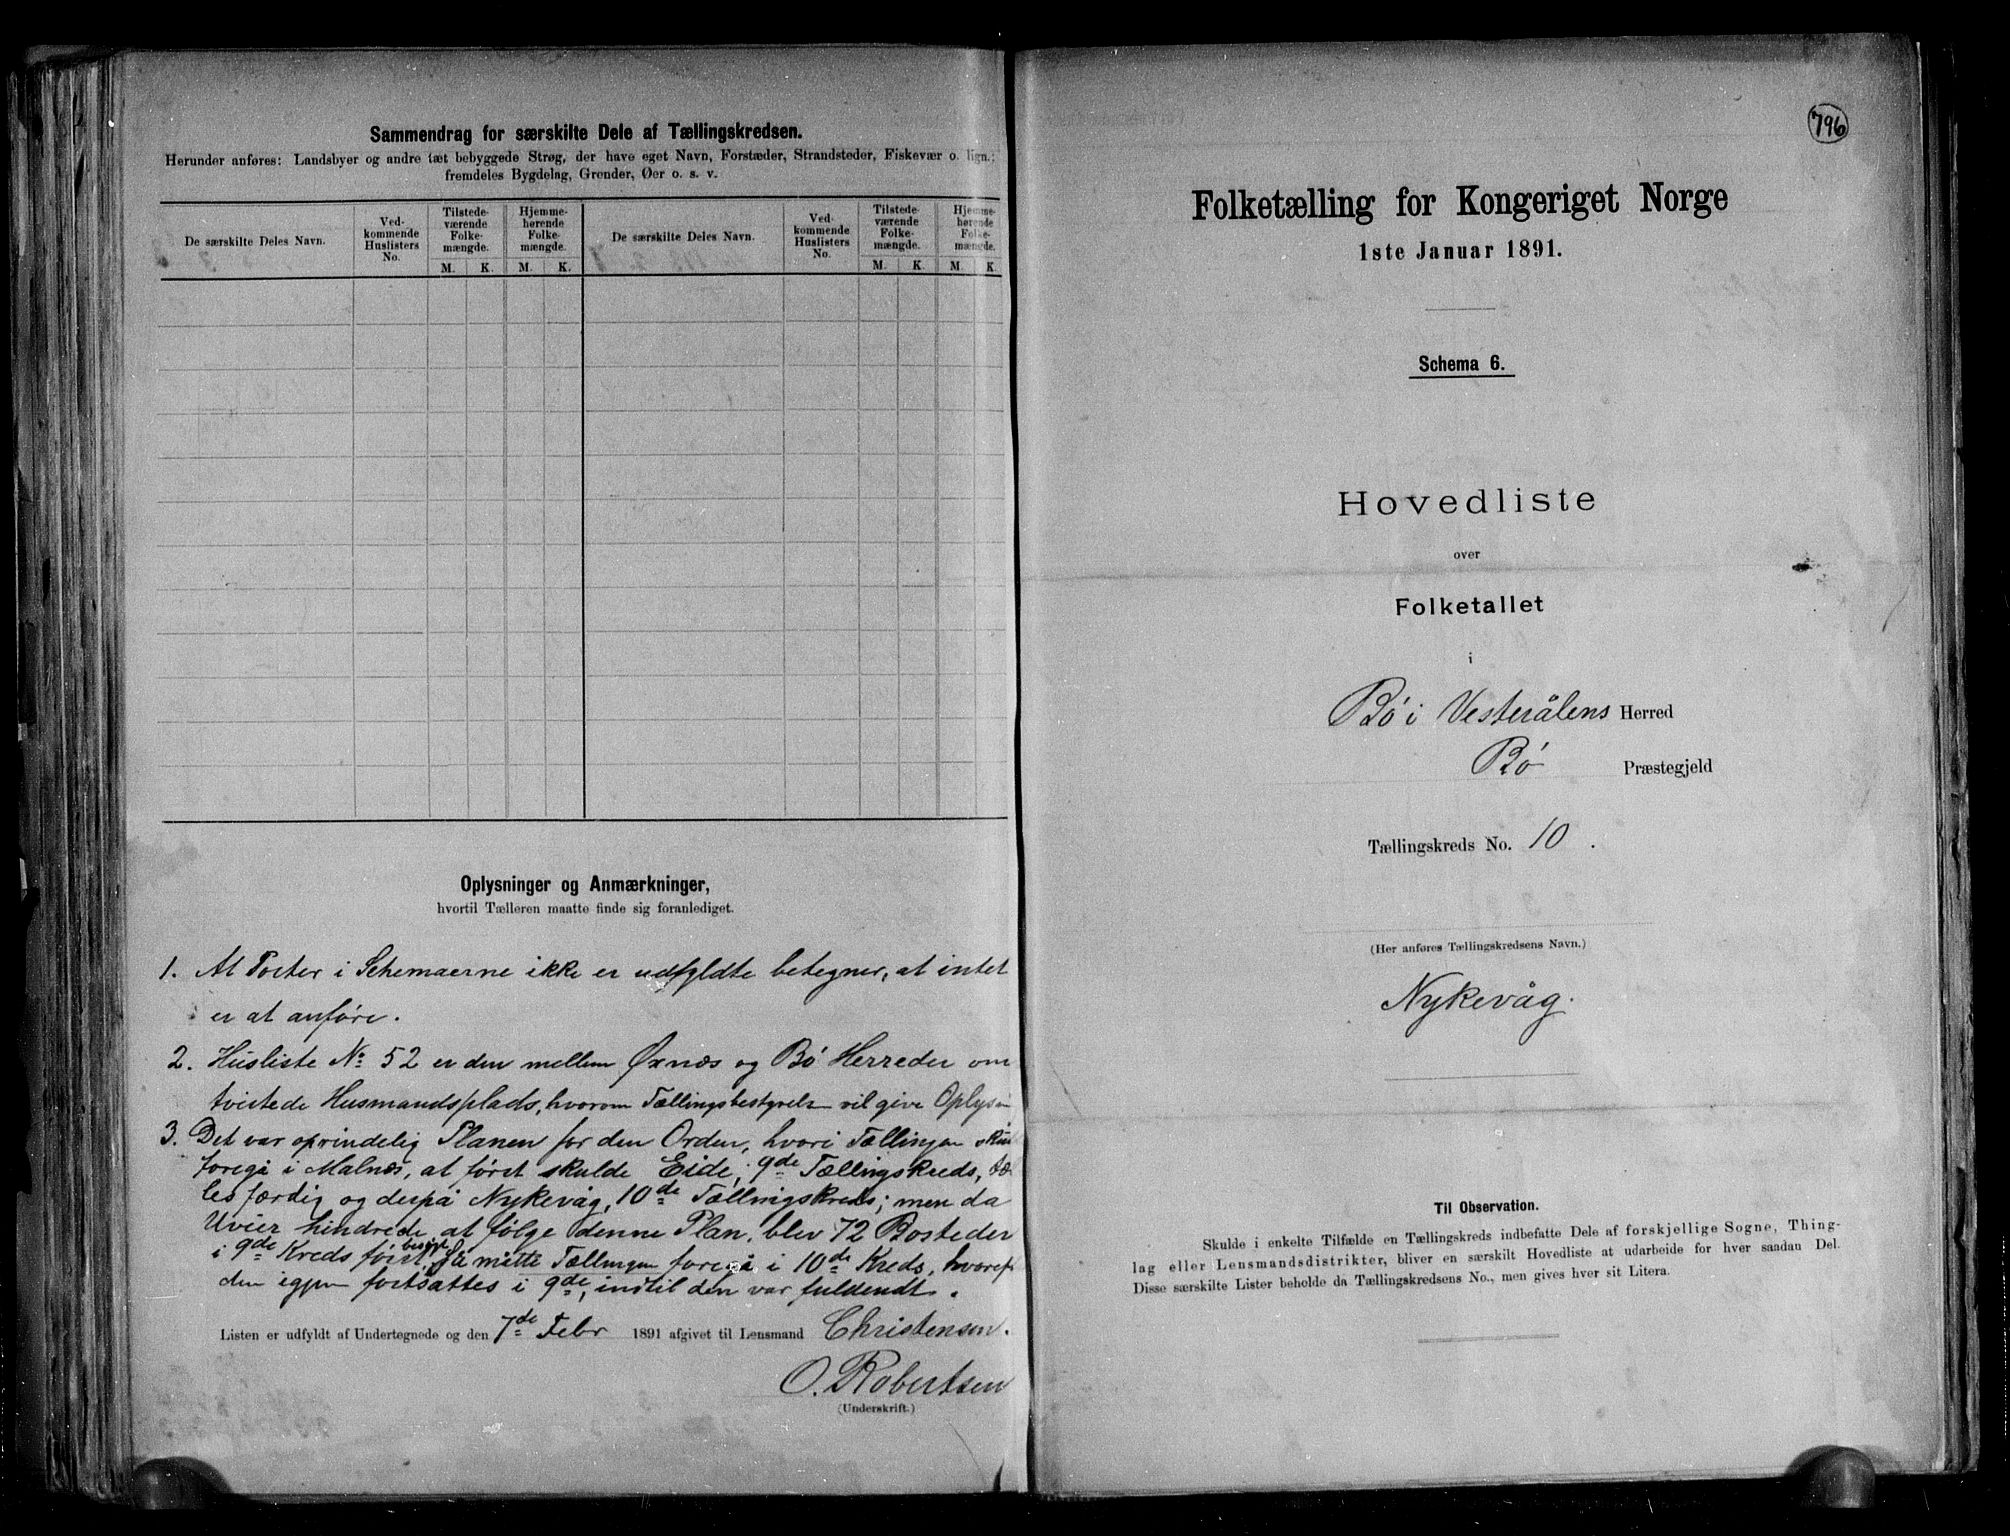 Sammendrag for særskilte Dele af Tællingskredsen.
Herunder anføres: Landsbyer og andre tæt bebyggede Strøg, der have eget Navn, Forstæder, Strandsteder, Fiskevær o. lign.;
fremdeles Bygdelag, Grender, Øer o. s. v.
De særskilte Deles Navn.
Ved-
kommende
Huslisters
No.
Tilstede-
værende
Folke-
mængde.
Hjemme-
hørende
Folke-
mængde.
M. K. M. K.
De særskilte Deles Navn.
Ved-
kommende
Huslisters
No.
Tilstede-
værende
Folke-
mængde.
Hjemme-
hørende
Folke-
mængde.
M. K. M. K.
Oplysninger og Anmærkninger,
hvortil Tælleren maatte finde sig foranlediget.
1. At Poster i Schemaerne ikke er udfyldte betegner, at intet
er at anføre.
2. Husliste No 52 er den mellem Øxnæs og Bø Herreder om
tvistede Husmandsplads, hvorom Tællingsbestyrels vil give Oplysn
3. Det var oprindelig Planen for den Orden, hvori Tællingen
foregå i Malnæs, at først skulde Eide, 9de Tællingskreds,
les færdig og derpå Nykevåg, 10de Tællingskreds; men da
Uveir hindrede at følge denne Plan, blev 72 Bosteder
i 9de Kreds først besøgt, så måtte Tællingen foregå i 10de Kreds, hvoref
den igjen fortsattes i 9de, indtil den var fuldendt.
Listen er udfyldt af Undertegnede og den 7de Febr 1891 afgivet til Lensmand Christensen.
O. Robertsen
(Underskrift.)
796
Folketælling for Kongeriget Norge
1ste Januar 1891.
Schema 6.
Hovedliste
over
Folketallet
i
Bø i Vesterålens Herred
Bø Præstegjeld
Tællingskreds No. 10.
(Her anføres Tællingskredsens Navn.)
Nykevåg.
Til Observation.
Skulde i enkelte Tilfælde en Tællingskreds indbefatte Dele af forskjellige Sogne, Thing-
lag eller Lensmandsdistrikter, bliver en særskilt Hovedliste at udarbeide for hver saadan Del.
Disse særskilte Lister beholde da Tællingskredsens No., men gives hver sit Litera.